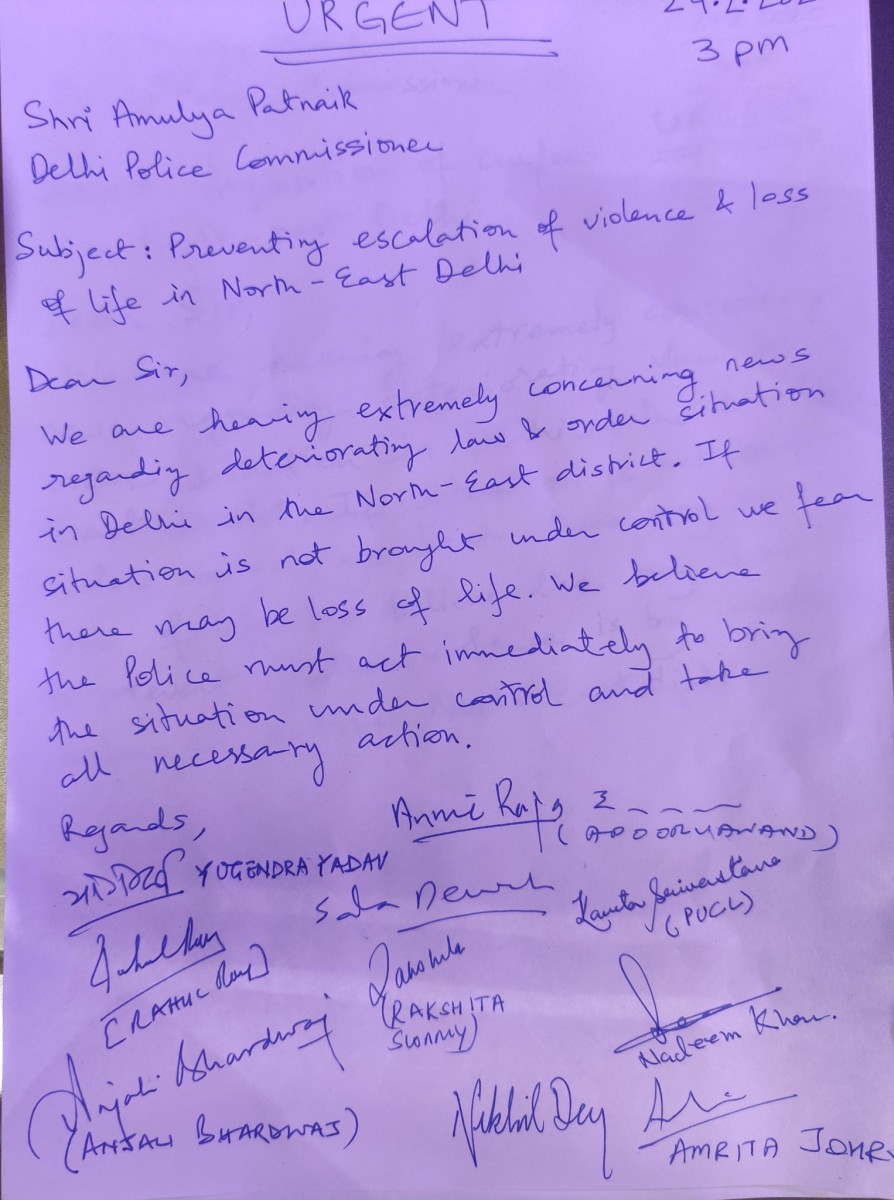 URGENT
3 pm
Shri Amulya Patnaik
Delhi Police Commissioner
Subject: Preventing escalation of violence & loss
of life in North-East Delhi
Dear Sir,
We are hearing extremely concerning news
regarding deteriorating law & order situation
in Delhi in the North-East district. If
situation is not brought under control we fear
there may be loss of life. We believe
the Police must act immediately to bring
the situation under control and take
all necessary action.
Regards,
Annie Raja
(APOORVANAND)
YOGENDRA YADAV
Kavita Srivastava
(PUCL)
[RAHUL Roy]
(RAKSHITA
Swamy)
Nadeem Khan.
Anjali Bhardwaj
(ANJALI BHARDWAJ)
Nikhil Dey
AMRITA JOHR